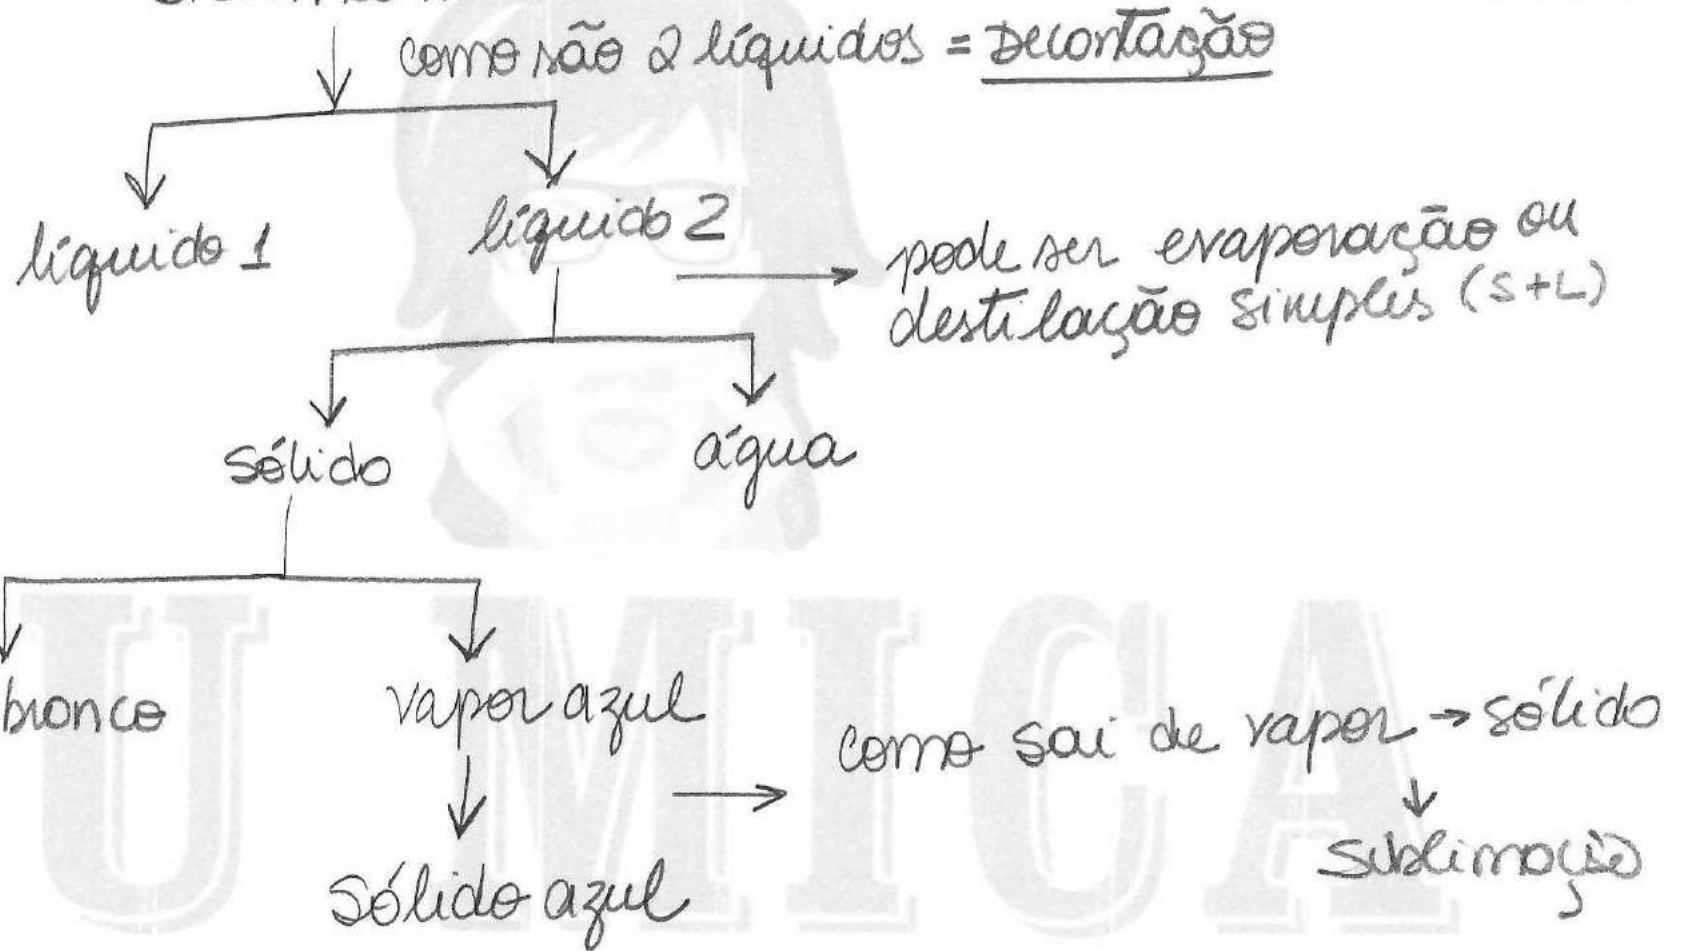 como são 2 líquidos = Decantação
líquido 1
líquido 2
pode ser evaporação ou
destilação simples (S+L)
sólido
água
branco
vapor azul
como sai de vapor → sólido
↓
sublimação
sólido azul
U MICA